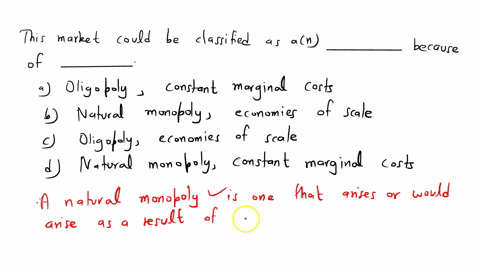 This market could be classified as a(n) __________ because
of __________.
a) Oligopoly, constant marginal costs
b) Natural monopoly, economies of scale
c) Oligopoly, economies of scale
d) Natural monopoly, constant marginal costs
A natural monopoly ✓ is one that arises or would
arise as a result of